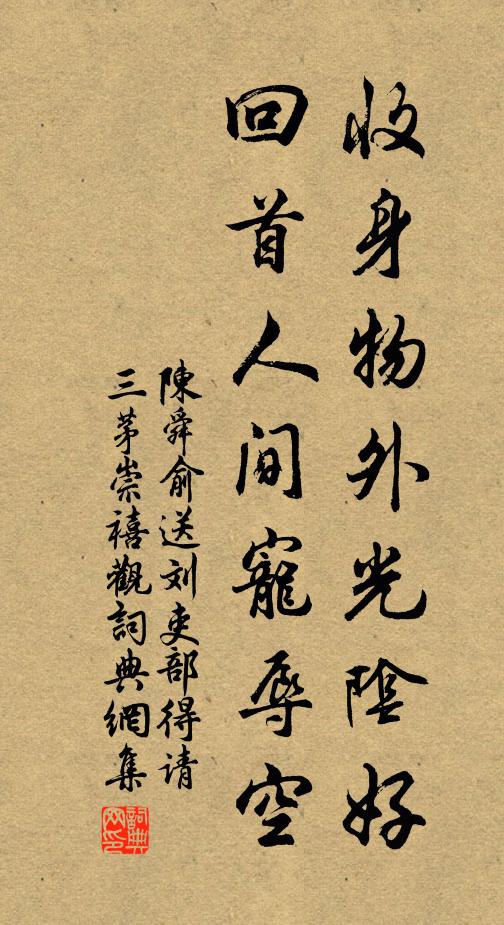 收身物外光陰好
回首人间寵辱空
陳舜俞送刘吏部得请
三茅崇禧觀詞典網集
詞典
网印